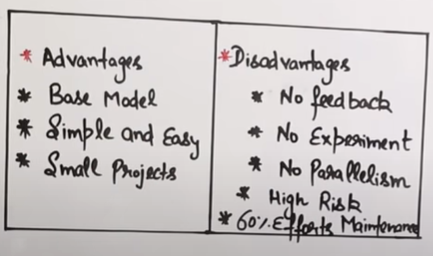 * Advantages
* Base Model
* Simple and Easy
* Small Projects
* Disadvantages
* No feedback
* No Experiment
* No Parallelism
* High Risk
* 60% Efforts Maintenance